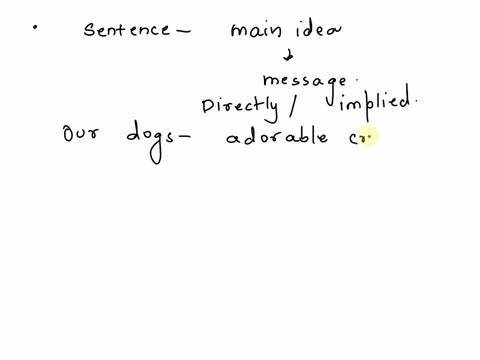 . Sentence – main idea
↓
message.
Directly / implied.
Our dogs – adorable cr